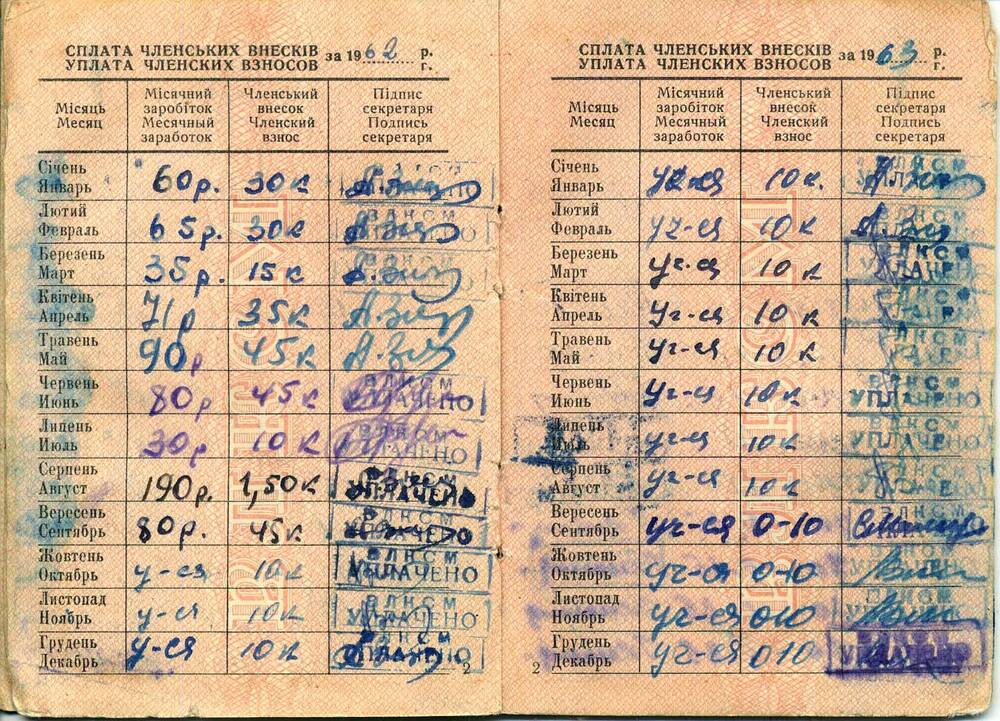 СПЛАТА ЧЛЕНСЬКИХ ВНЕСКІВ за 1962 р.
УПЛАТА ЧЛЕНСКИХ ВЗНОСОВ г.
Місяць Месяц
Місячний заробіток Месячный заработок
Членський внесок Членский взнос
Підпис секретаря Подпись секретаря
Січень Январь 60р. 30к
Лютий Февраль 65р. 30к ВЛКСМ
Березень Март 35р. 15к
Квітень Апрель 71р 35к
Травень Май 90р 45к
Червень Июнь 80р 45к ВЛКСМ УПЛАЧЕНО
Липень Июль 30р. 10к ВЛКСМ УПЛАЧЕНО
Серпень Август 190р. 1,50к УПЛАЧЕНО
Вересень Сентябрь 80р. 45к ВЛКСМ УПЛАЧЕНО
Жовтень Октябрь у-ся 10к ВЛКСМ УПЛАЧЕНО
Листопад Ноябрь у-ся 10к ВЛКСМ УПЛАЧЕНО
Грудень Декабрь у-ся 10к ВЛКСМ УПЛАЧЕНО
2
СПЛАТА ЧЛЕНСЬКИХ ВНЕСКІВ за 1963 р.
УПЛАТА ЧЛЕНСКИХ ВЗНОСОВ г.
Місяць Месяц
Місячний заробіток Месячный заработок
Членський внесок Членский взнос
Підпис секретаря Подпись секретаря
Січень Январь уч-ся 10к. ВЛКСМ
Лютий Февраль уч-ся 10к ВЛКСМ
Березень Март уч-ся 10к ВЛКСМ
Квітень Апрель уч-ся 10к
Травень Май уч-ся 10к
Червень Июнь уч-ся 10к ВЛКСМ УПЛАЧЕНО
Липень Июль уч-ся 10к ВЛКСМ УПЛАЧЕНО
Серпень Август уч-ся 10к
Вересень Сентябрь уч-ся 0-10 ВЛКСМ
Жовтень Октябрь уч-ся 0-10
Листопад Ноябрь уч-ся 0-10
Грудень Декабрь уч-ся 0-10 ВЛКСМ УПЛАЧЕНО
2